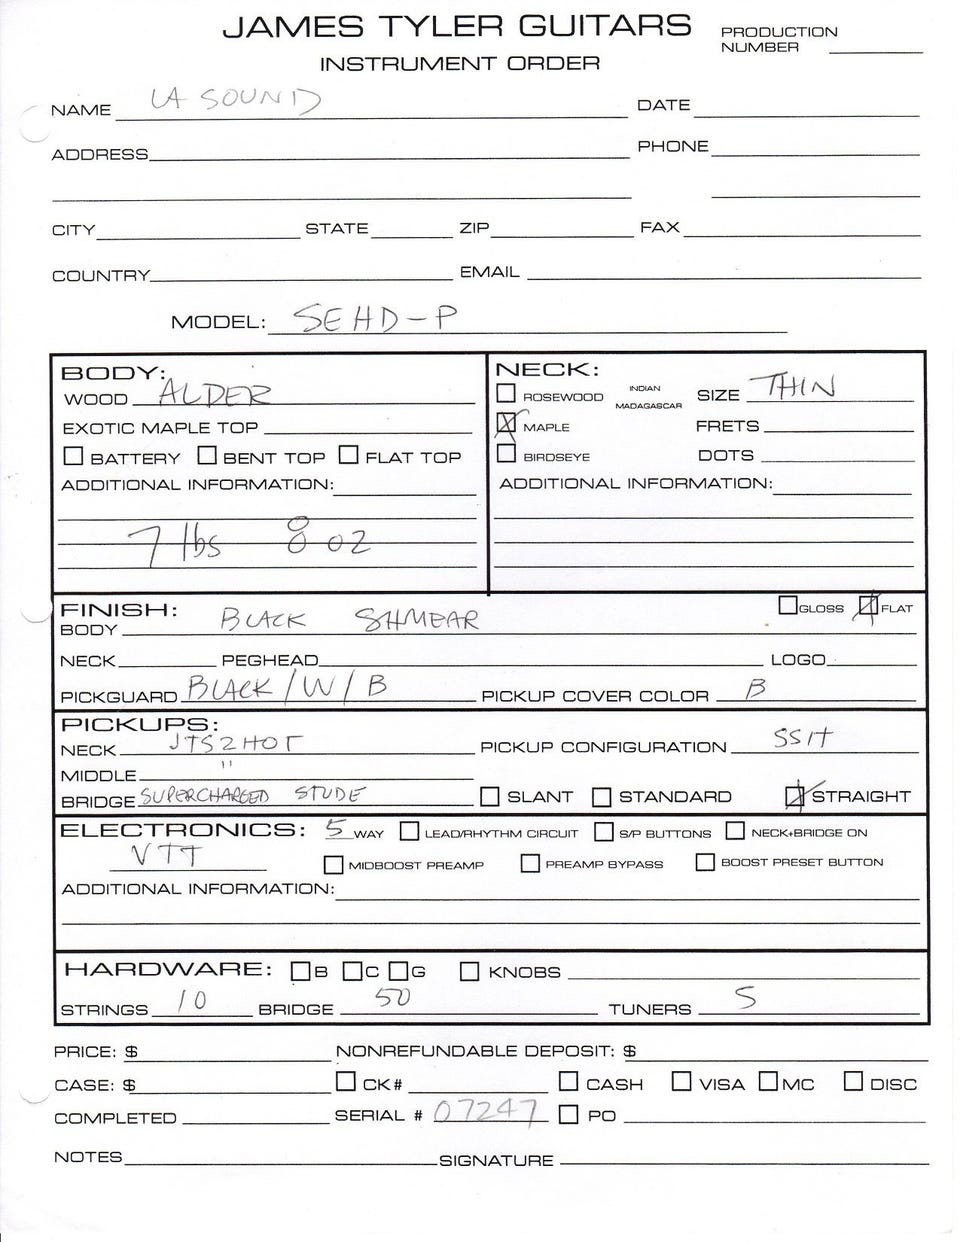 JAMES TYLER GUITARS
PRODUCTION NUMBER
INSTRUMENT ORDER
NAME LA SOUND DATE
ADDRESS PHONE
CITY STATE ZIP FAX
COUNTRY EMAIL
MODEL: SEHD-P
BODY:
WOOD ALDER
EXOTIC MAPLE TOP
BATTERY BENT TOP FLAT TOP
ADDITIONAL INFORMATION:
7 lbs 8 oz
NECK:
ROSEWOOD INDIAN MADAGASCAR SIZE THIN
MAPLE FRETS
BIRDSEYE DOTS
ADDITIONAL INFORMATION:
FINISH: GLOSS FLAT
BODY BLACK SHMEAR
NECK PEGHEAD LOGO
PICKGUARD BLACK/W/B PICKUP COVER COLOR B
PICKUPS:
NECK JTS2HOT PICKUP CONFIGURATION SSH
MIDDLE "
BRIDGE SUPERCHARGED STUDE SLANT STANDARD STRAIGHT
ELECTRONICS: 5 WAY LEAD/RHYTHM CIRCUIT S/P BUTTONS NECK+BRIDGE ON
VTT MIDBOOST PREAMP PREAMP BYPASS BOOST PRESET BUTTON
ADDITIONAL INFORMATION:
HARDWARE: B C G KNOBS
STRINGS 10 BRIDGE 50 TUNERS S
PRICE: $ NONREFUNDABLE DEPOSIT: $
CASE: $ CK# CASH VISA MC DISC
COMPLETED SERIAL # 07247 PO
NOTES SIGNATURE